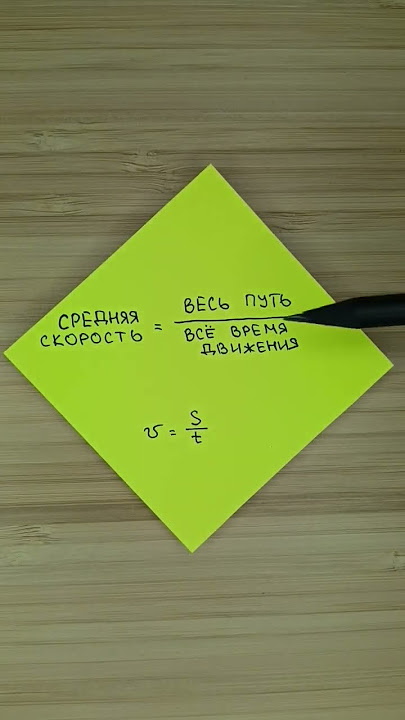 СРЕДНЯЯ СКОРОСТЬ = ВЕСЬ ПУТЬ / ВСЁ ВРЕМЯ ДВИЖЕНИЯ
v = S / t